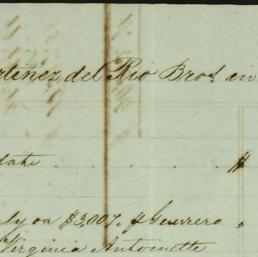 rtinez del Rio Bros. in
date . . . . . . . . . . . $
ly on $3,007. of Guerrero "
Virginia Antoinette